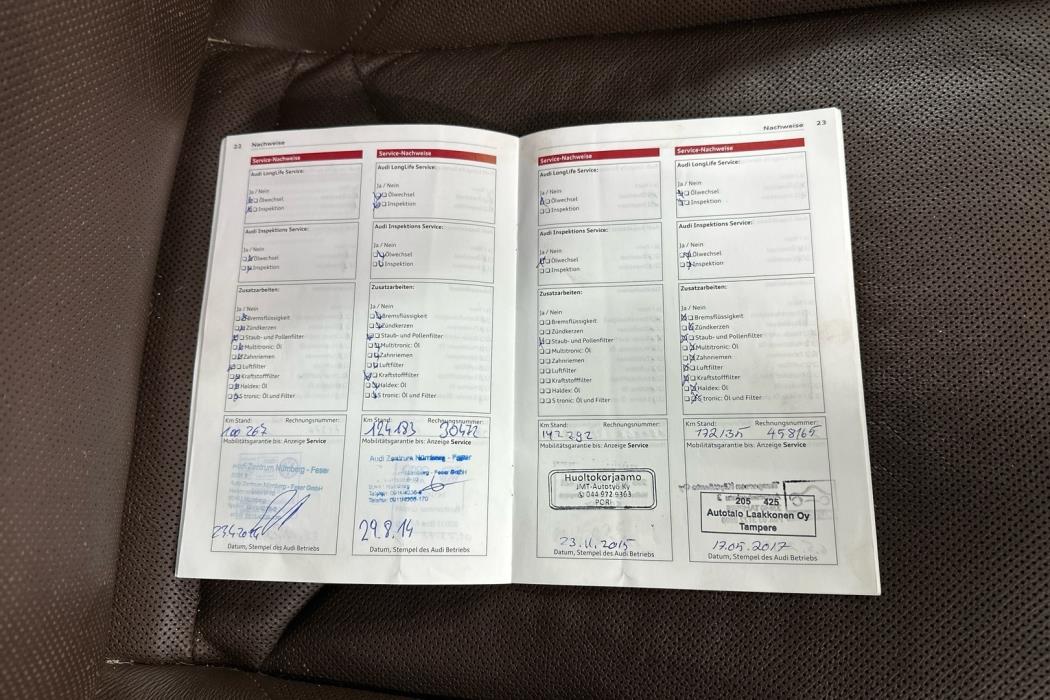 22 Nachweise
Service-Nachweise
Audi LongLife Service:
Ja / Nein
Ölwechsel
Inspektion
Audi Inspektions Service:
Ja / Nein
Ölwechsel
Inspektion
Zusatzarbeiten:
Ja / Nein
Bremsflüssigkeit
Zündkerzen
Staub- und Pollenfilter
Multitronic: Öl
Zahnriemen
Luftfilter
Kraftstofffilter
Haldex: Öl
S tronic: Öl und Filter
Km Stand: Rechnungsnummer:
100 267
Mobilitätsgarantie bis: Anzeige Service
Audi Zentrum Nürnberg - Feser
Audi Zentrum Nürnberg - Feser GmbH
Datum, Stempel des Audi Betriebs
Service-Nachweise
Audi LongLife Service:
Ja / Nein
Ölwechsel
Inspektion
Audi Inspektions Service:
Ja / Nein
Ölwechsel
Inspektion
Zusatzarbeiten:
Ja / Nein
Bremsflüssigkeit
Zündkerzen
Staub- und Pollenfilter
Multitronic: Öl
Zahnriemen
Luftfilter
Kraftstofffilter
Haldex: Öl
S tronic: Öl und Filter
Km Stand: Rechnungsnummer:
124183 30472
Mobilitätsgarantie bis: Anzeige Service
Audi Zentrum Nürnberg - Feser
Nürnberg - Feser GmbH
29.8.14
Datum, Stempel des Audi Betriebs
Nachweise 23
Service-Nachweise
Audi LongLife Service:
Ja / Nein
Ölwechsel
Inspektion
Audi Inspektions Service:
Ja / Nein
Ölwechsel
Inspektion
Zusatzarbeiten:
Ja / Nein
Bremsflüssigkeit
Zündkerzen
Staub- und Pollenfilter
Multitronic: Öl
Zahnriemen
Luftfilter
Kraftstofffilter
Haldex: Öl
S tronic: Öl und Filter
Km Stand: Rechnungsnummer:
142 292
Mobilitätsgarantie bis: Anzeige Service
Huoltokorjaamo
JMT-Autotyö Ky
044 972 9363
PORI
23.11.2015
Datum, Stempel des Audi Betriebs
Service-Nachweise
Audi LongLife Service:
Ja / Nein
Ölwechsel
Inspektion
Audi Inspektions Service:
Ja / Nein
Ölwechsel
Inspektion
Zusatzarbeiten:
Ja / Nein
Bremsflüssigkeit
Zündkerzen
Staub- und Pollenfilter
Multitronic: Öl
Zahnriemen
Luftfilter
Kraftstofffilter
Haldex: Öl
S tronic: Öl und Filter
Km Stand: Rechnungsnummer:
172135 458165
Mobilitätsgarantie bis: Anzeige Service
205 425
Autotalo Laakkonen Oy
Tampere
17.05.2017
Datum, Stempel des Audi Betriebs